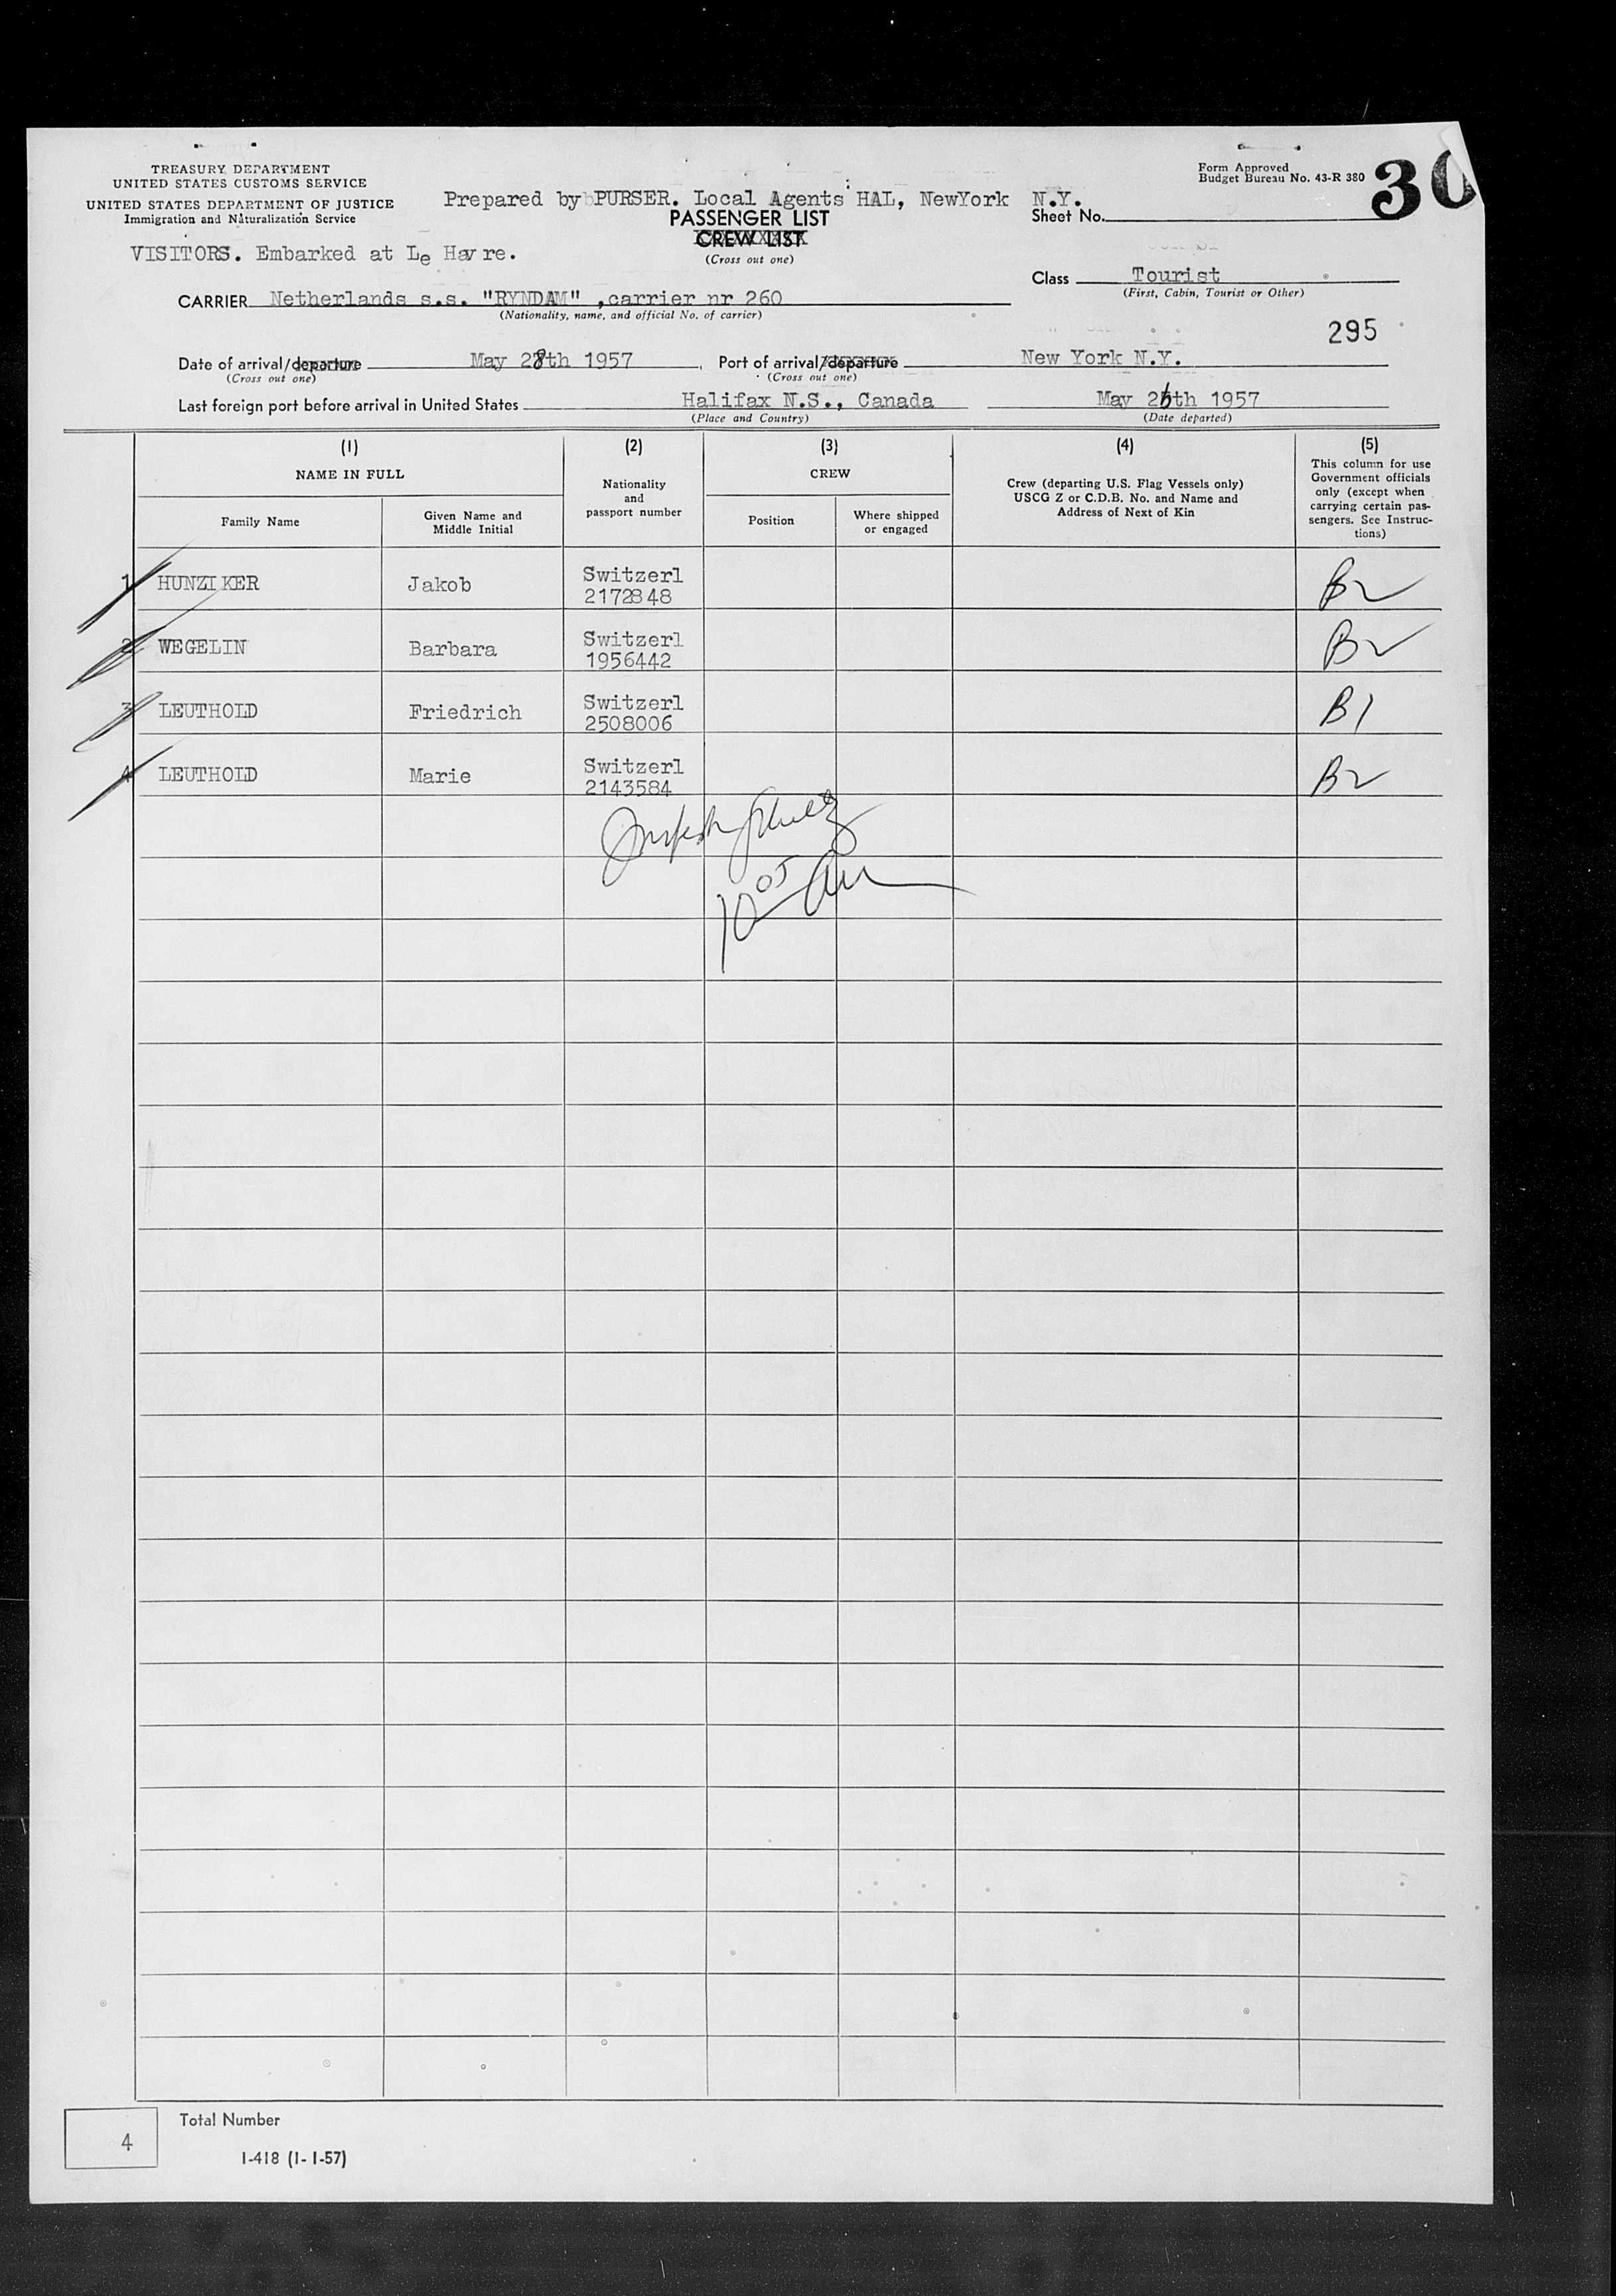 TREASURY DEPARTMENT
UNITED STATES CUSTOMS SERVICE
UNITED STATES DEPARTMENT OF JUSTICE
Immigration and Naturalization Service
Prepared by PURSER. Local Agents HAL, NewYork N.Y.
PASSENGER LIST
CREW LIST
(Cross out one)
Form Approved
Budget Bureau No. 43-R 380
30
Sheet No.
VISITORS. Embarked at Le Havre.
Class Tourist
(First, Cabin, Tourist or Other)
CARRIER Netherlands s.s. "RYNDAM" ,carrier nr 260
(Nationality, name, and official No. of carrier)
295
Date of arrival/departure May 28th 1957, Port of arrival/departure New York N.Y.
(Cross out one) (Cross out one)
Last foreign port before arrival in United States Halifax N.S., Canada May 26th 1957
(Place and Country) (Date departed)
(1) (2) (3) (4) (5)
NAME IN FULL
Family Name
Given Name and
Middle Initial
Nationality
and
passport number
CREW
Position
Where shipped
or engaged
Crew (departing U.S. Flag Vessels only)
USCG Z or C.D.B. No. and Name and
Address of Next of Kin
This column for use
Government officials
only (except when
carrying certain pas-
sengers. See Instruc-
tions)
1 HUNZIKER Jakob Switzerl B2
2172848
2 WEGELIN Barbara Switzerl B2
1956442
3 LEUTHOLD Friedrich Switzerl B1
2508006
4 LEUTHOLD Marie Switzerl B2
2143584
10 05 AM
4
Total Number
I-418 (1-1-57)